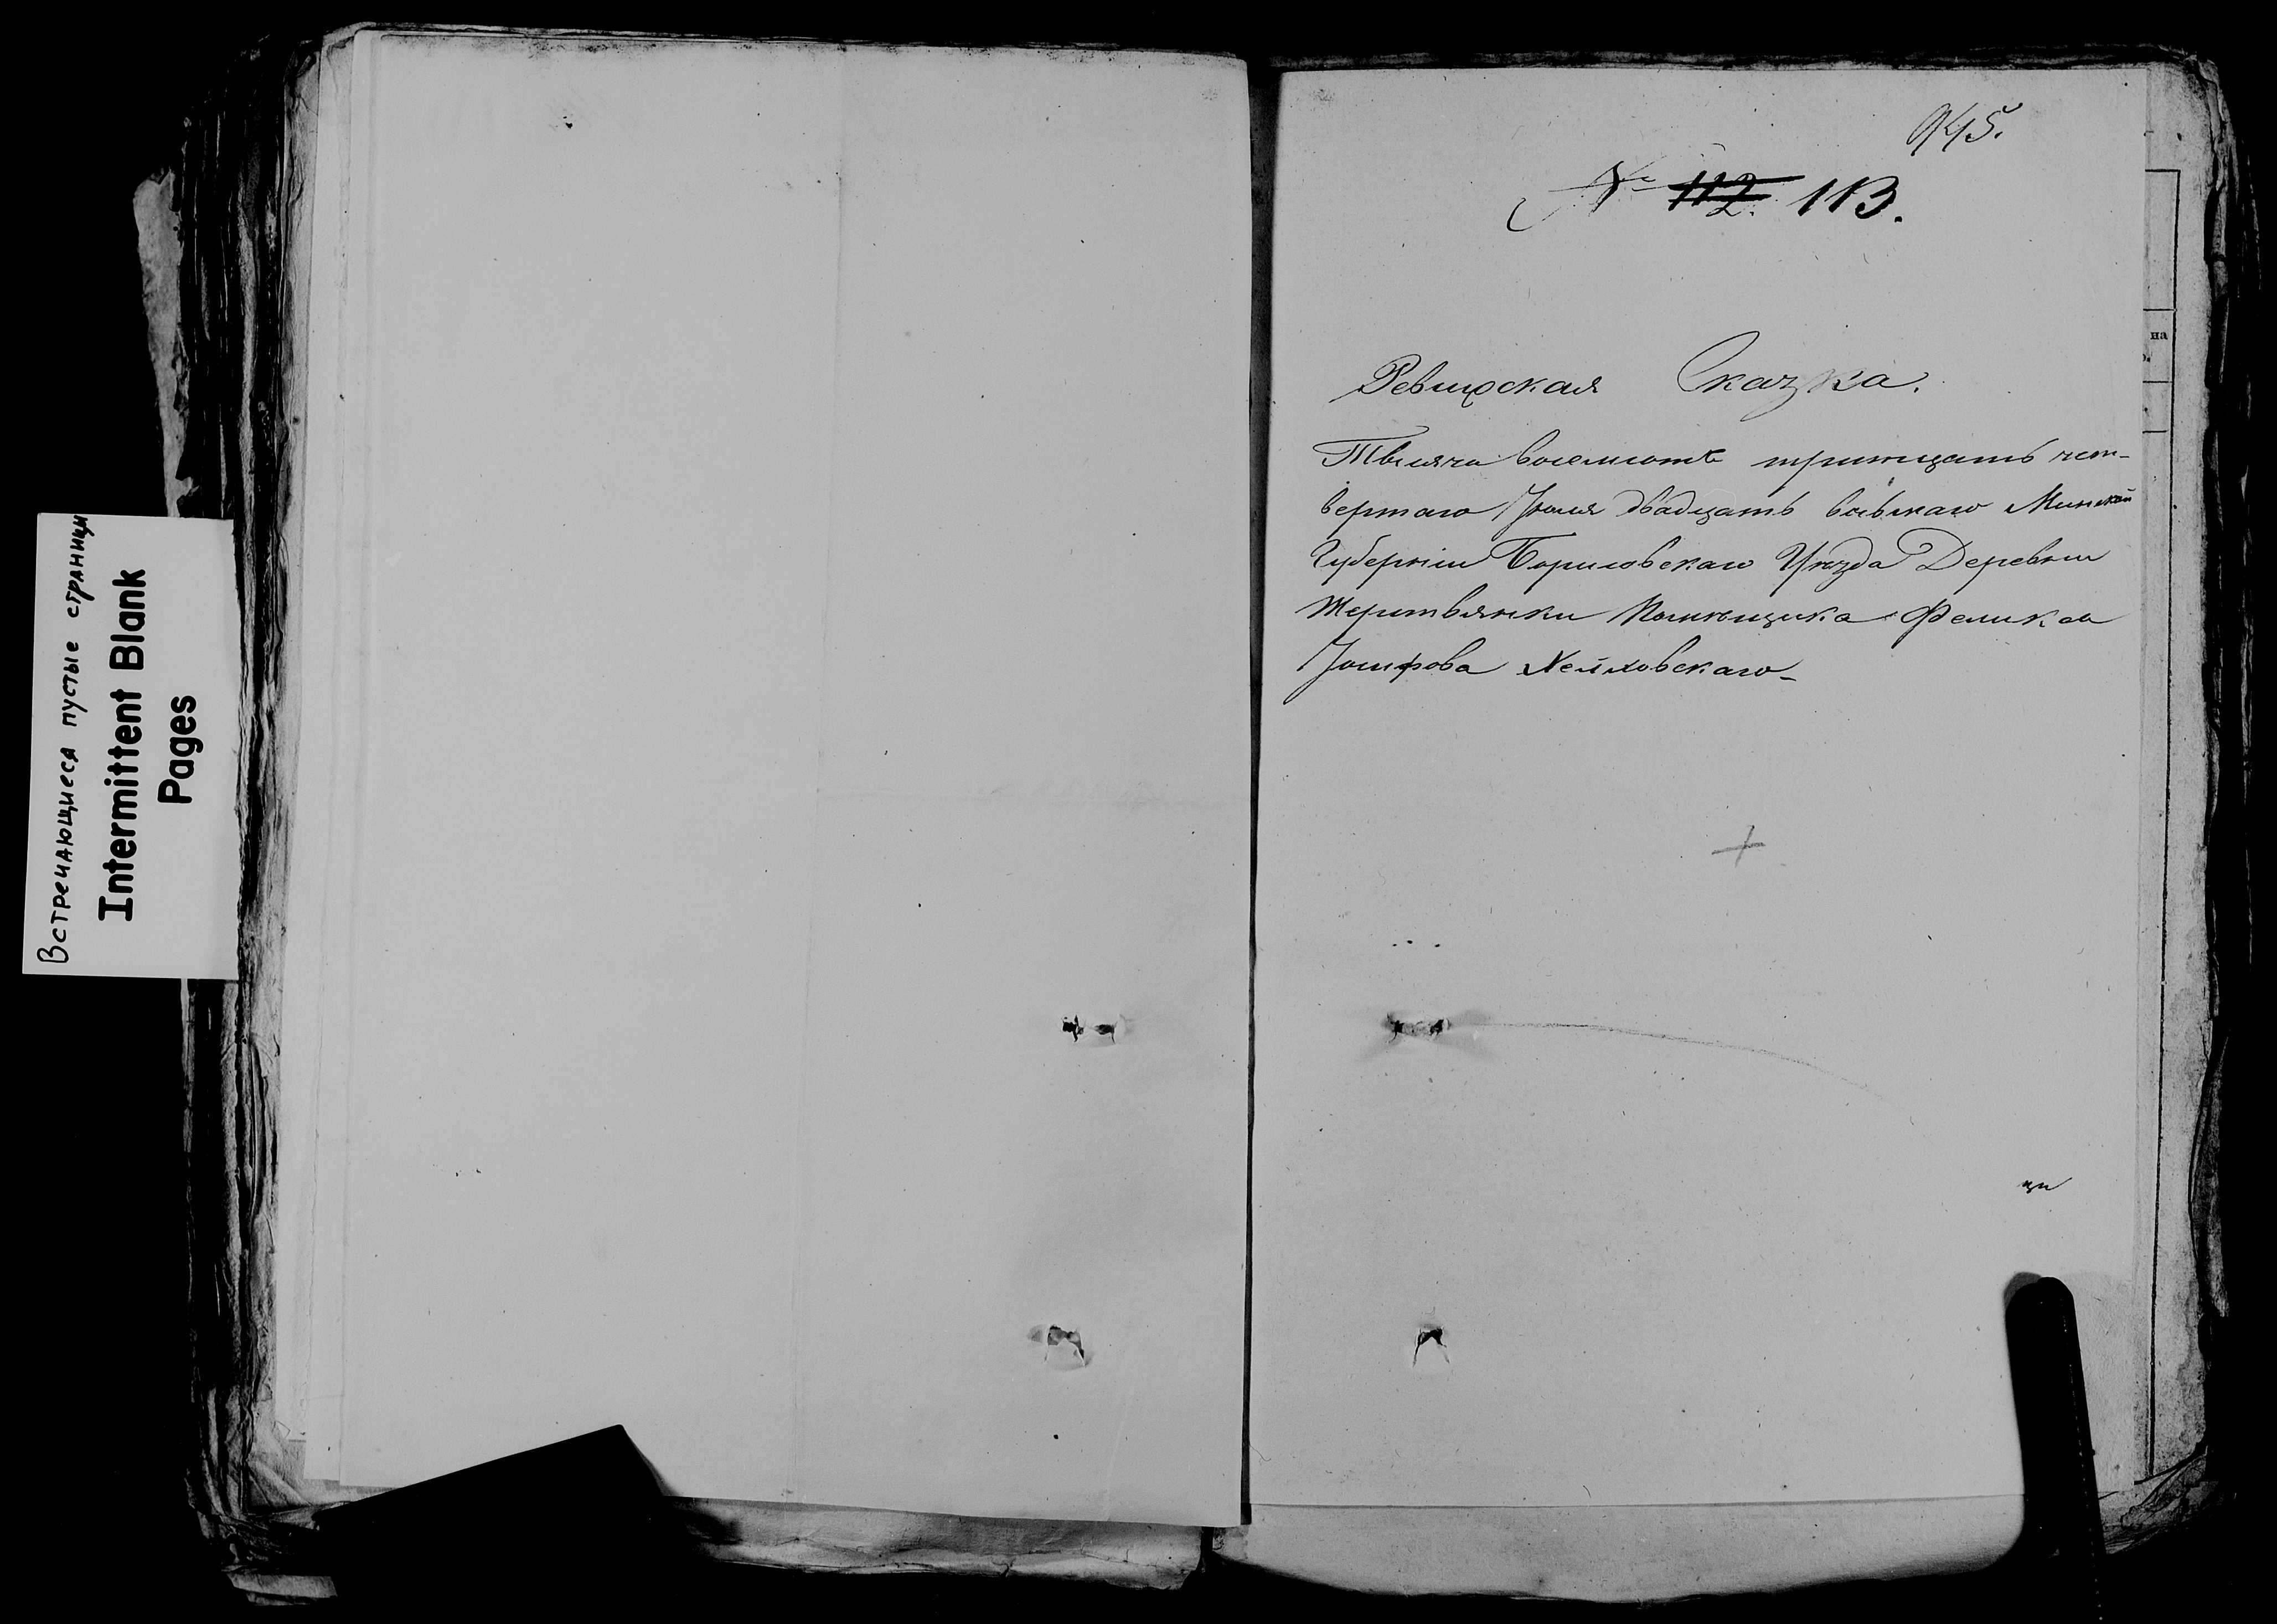 Встречающиеся пустые страницы
Intermittent Blank
Pages
945.
№ 112. 113.
Ревизская Сказка.
Тысяча восемсотъ тритцать чет-
вертаго Июля двадцать восьмаго Минской
Губерніи Борисовскаго Уѣзда Деревни
Жертвянки Помѣщика Феликса
Иосифова
на